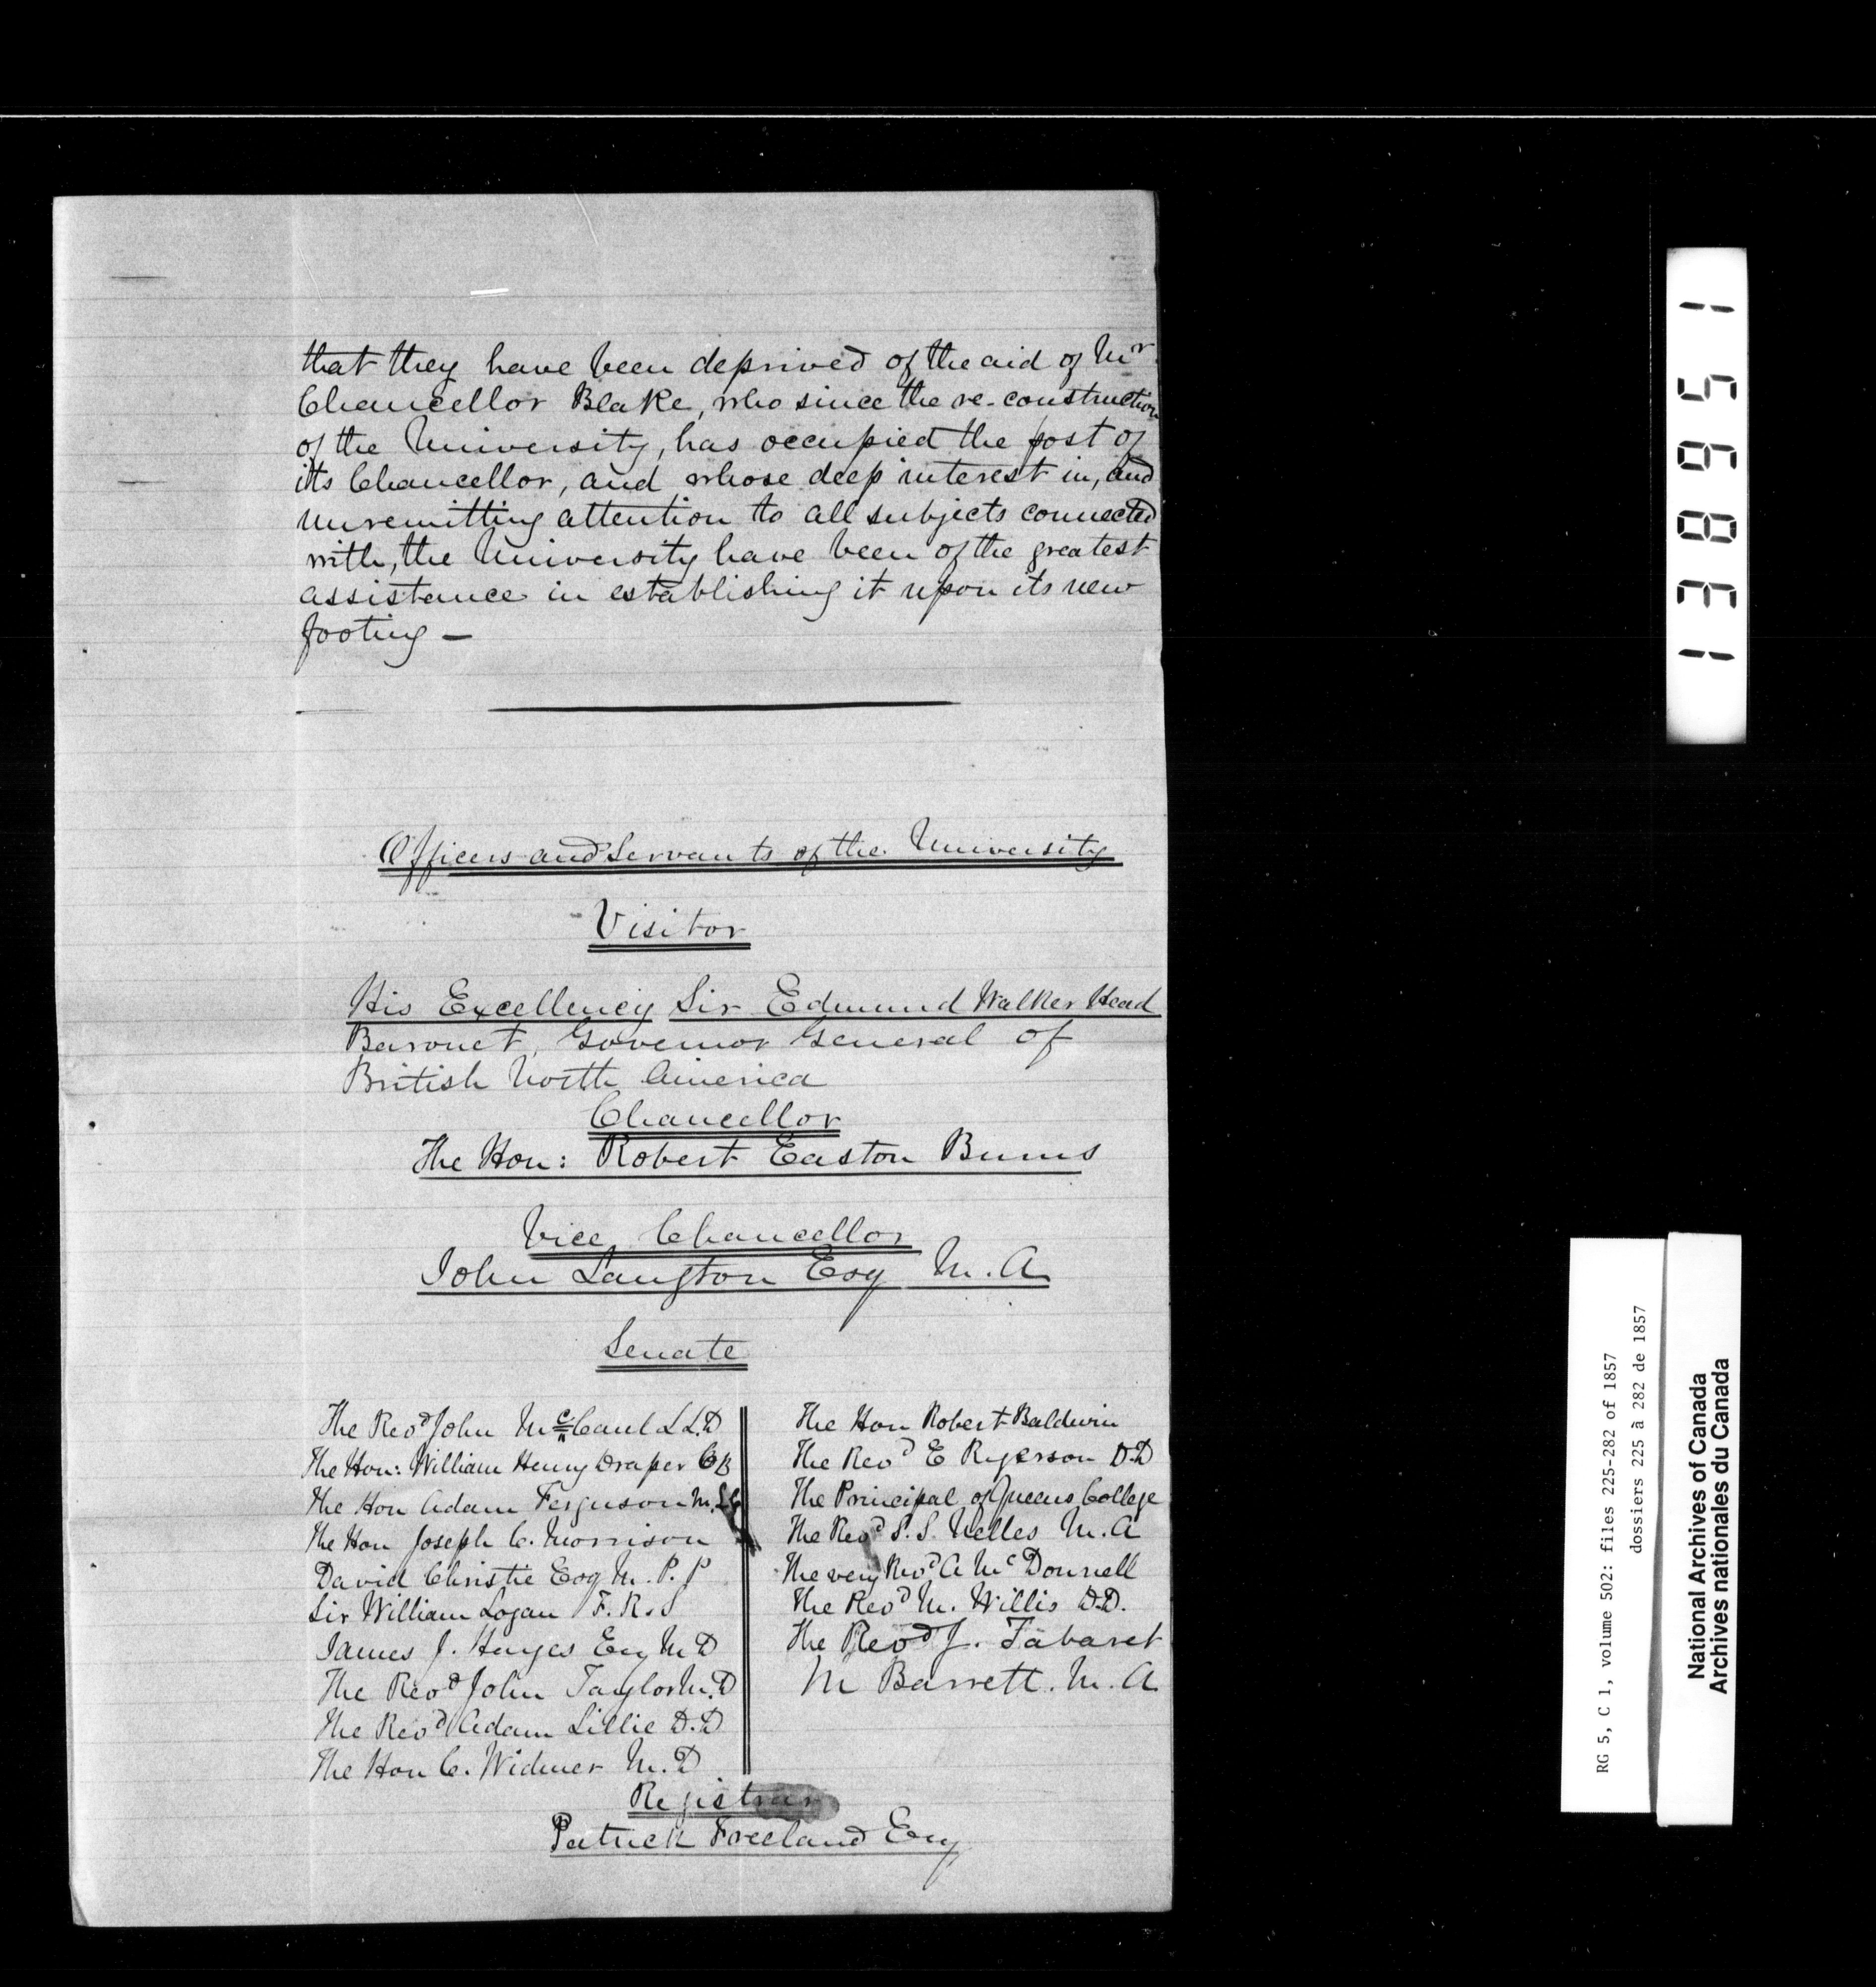 that they have been deprived of the aid of Mr
Chancellor Blake, who since the re-construction
of the University, has occupied the post of
its Chancellor, and whose deep interest in, and
unremitting attention to all subjects connected
with, the University have been of the greatest
assistance in establishing it upon its new
footing —
Officers and Servants of the University
Visitor
His Excellency Sir Edmund Walker Head
Baronet, Governor General of
British North America
Chancellor
The Hon: Robert Easton Burns
Vice Chancellor
John Langton Esq M.A.
Senate
The Revd John McCaul LL.D
The Hon: William Henry Draper CB
The Hon Adam Ferguson
The Hon Joseph C. Morrison
David Christie Esq M.P.P
Sir William Logan F.R.S
James J. Hayes Esq M.D
The Revd John Taylor M.D
The Revd Adam Lillie D.D
The Hon C. Widmer M.D
The Hon Robert Baldwin
The Revd E Ryerson D.D
The Principal of Queens College
The Revd S.S. Nelles M.A
The very Revd A McDonnell
The Revd M. Willis D.D.
The Revd J. Tabaret
M Barrett. M.A.
Registrar
Patrick Freeland Esq
138951
RG 5, C 1, volume 502: files 225-282 of 1857
dossiers 225 à 282 de 1857
National Archives of Canada
Archives nationales du Canada